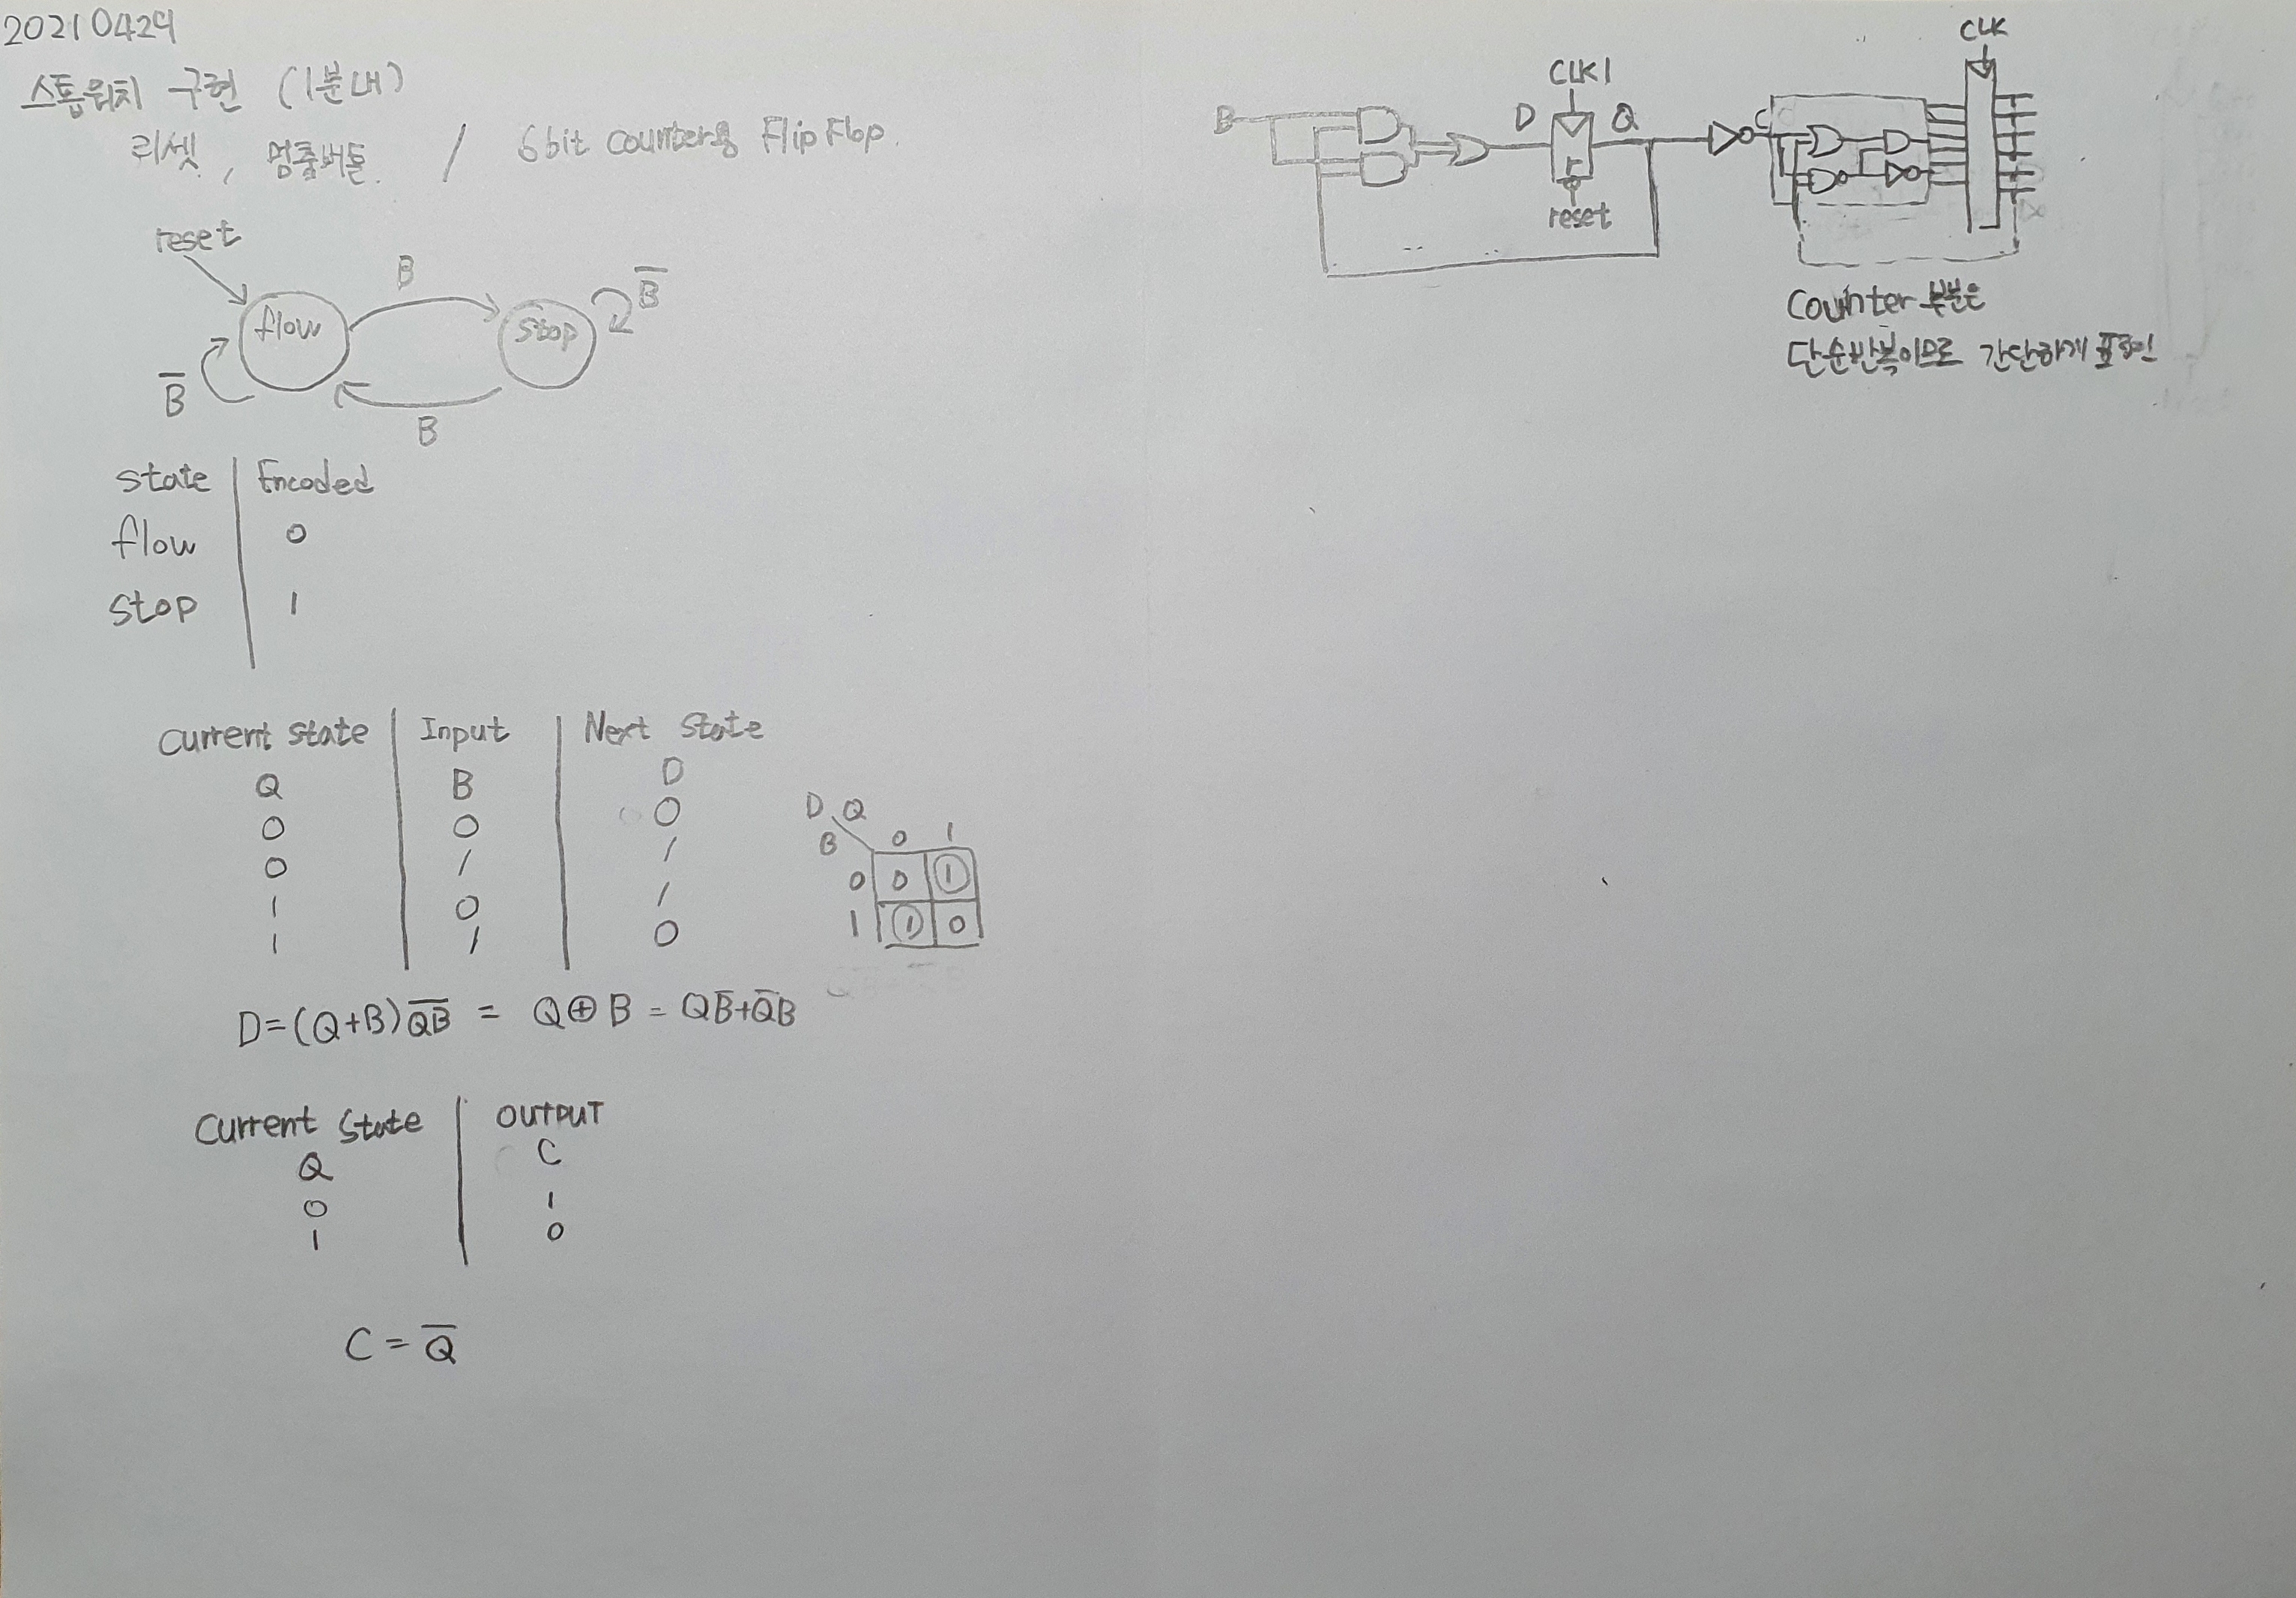 20210429
스톱워치 구현 (1분내)
리셋, 멈춤버튼 / 6bit counter용 Flip Flop.
reset
flow
B
stop
B̅
B̅
B
state | Encoded
flow | 0
stop | 1
Current state | Input | Next state
Q | B | D
0 | 0 | 0
0 | 1 | 1
1 | 0 | 1
1 | 1 | 0
D Q
B 0 1
0 0 1
1 1 0
D=(Q+B)Q̅B̅ = Q⊕B = QB̅+Q̅B
Current state | OUTPUT
Q | C
0 | 1
1 | 0
C = Q̅
CLK
CLK1
B D Q C
r
reset
Counter 부분은
단순반복이므로 간단하게 표현